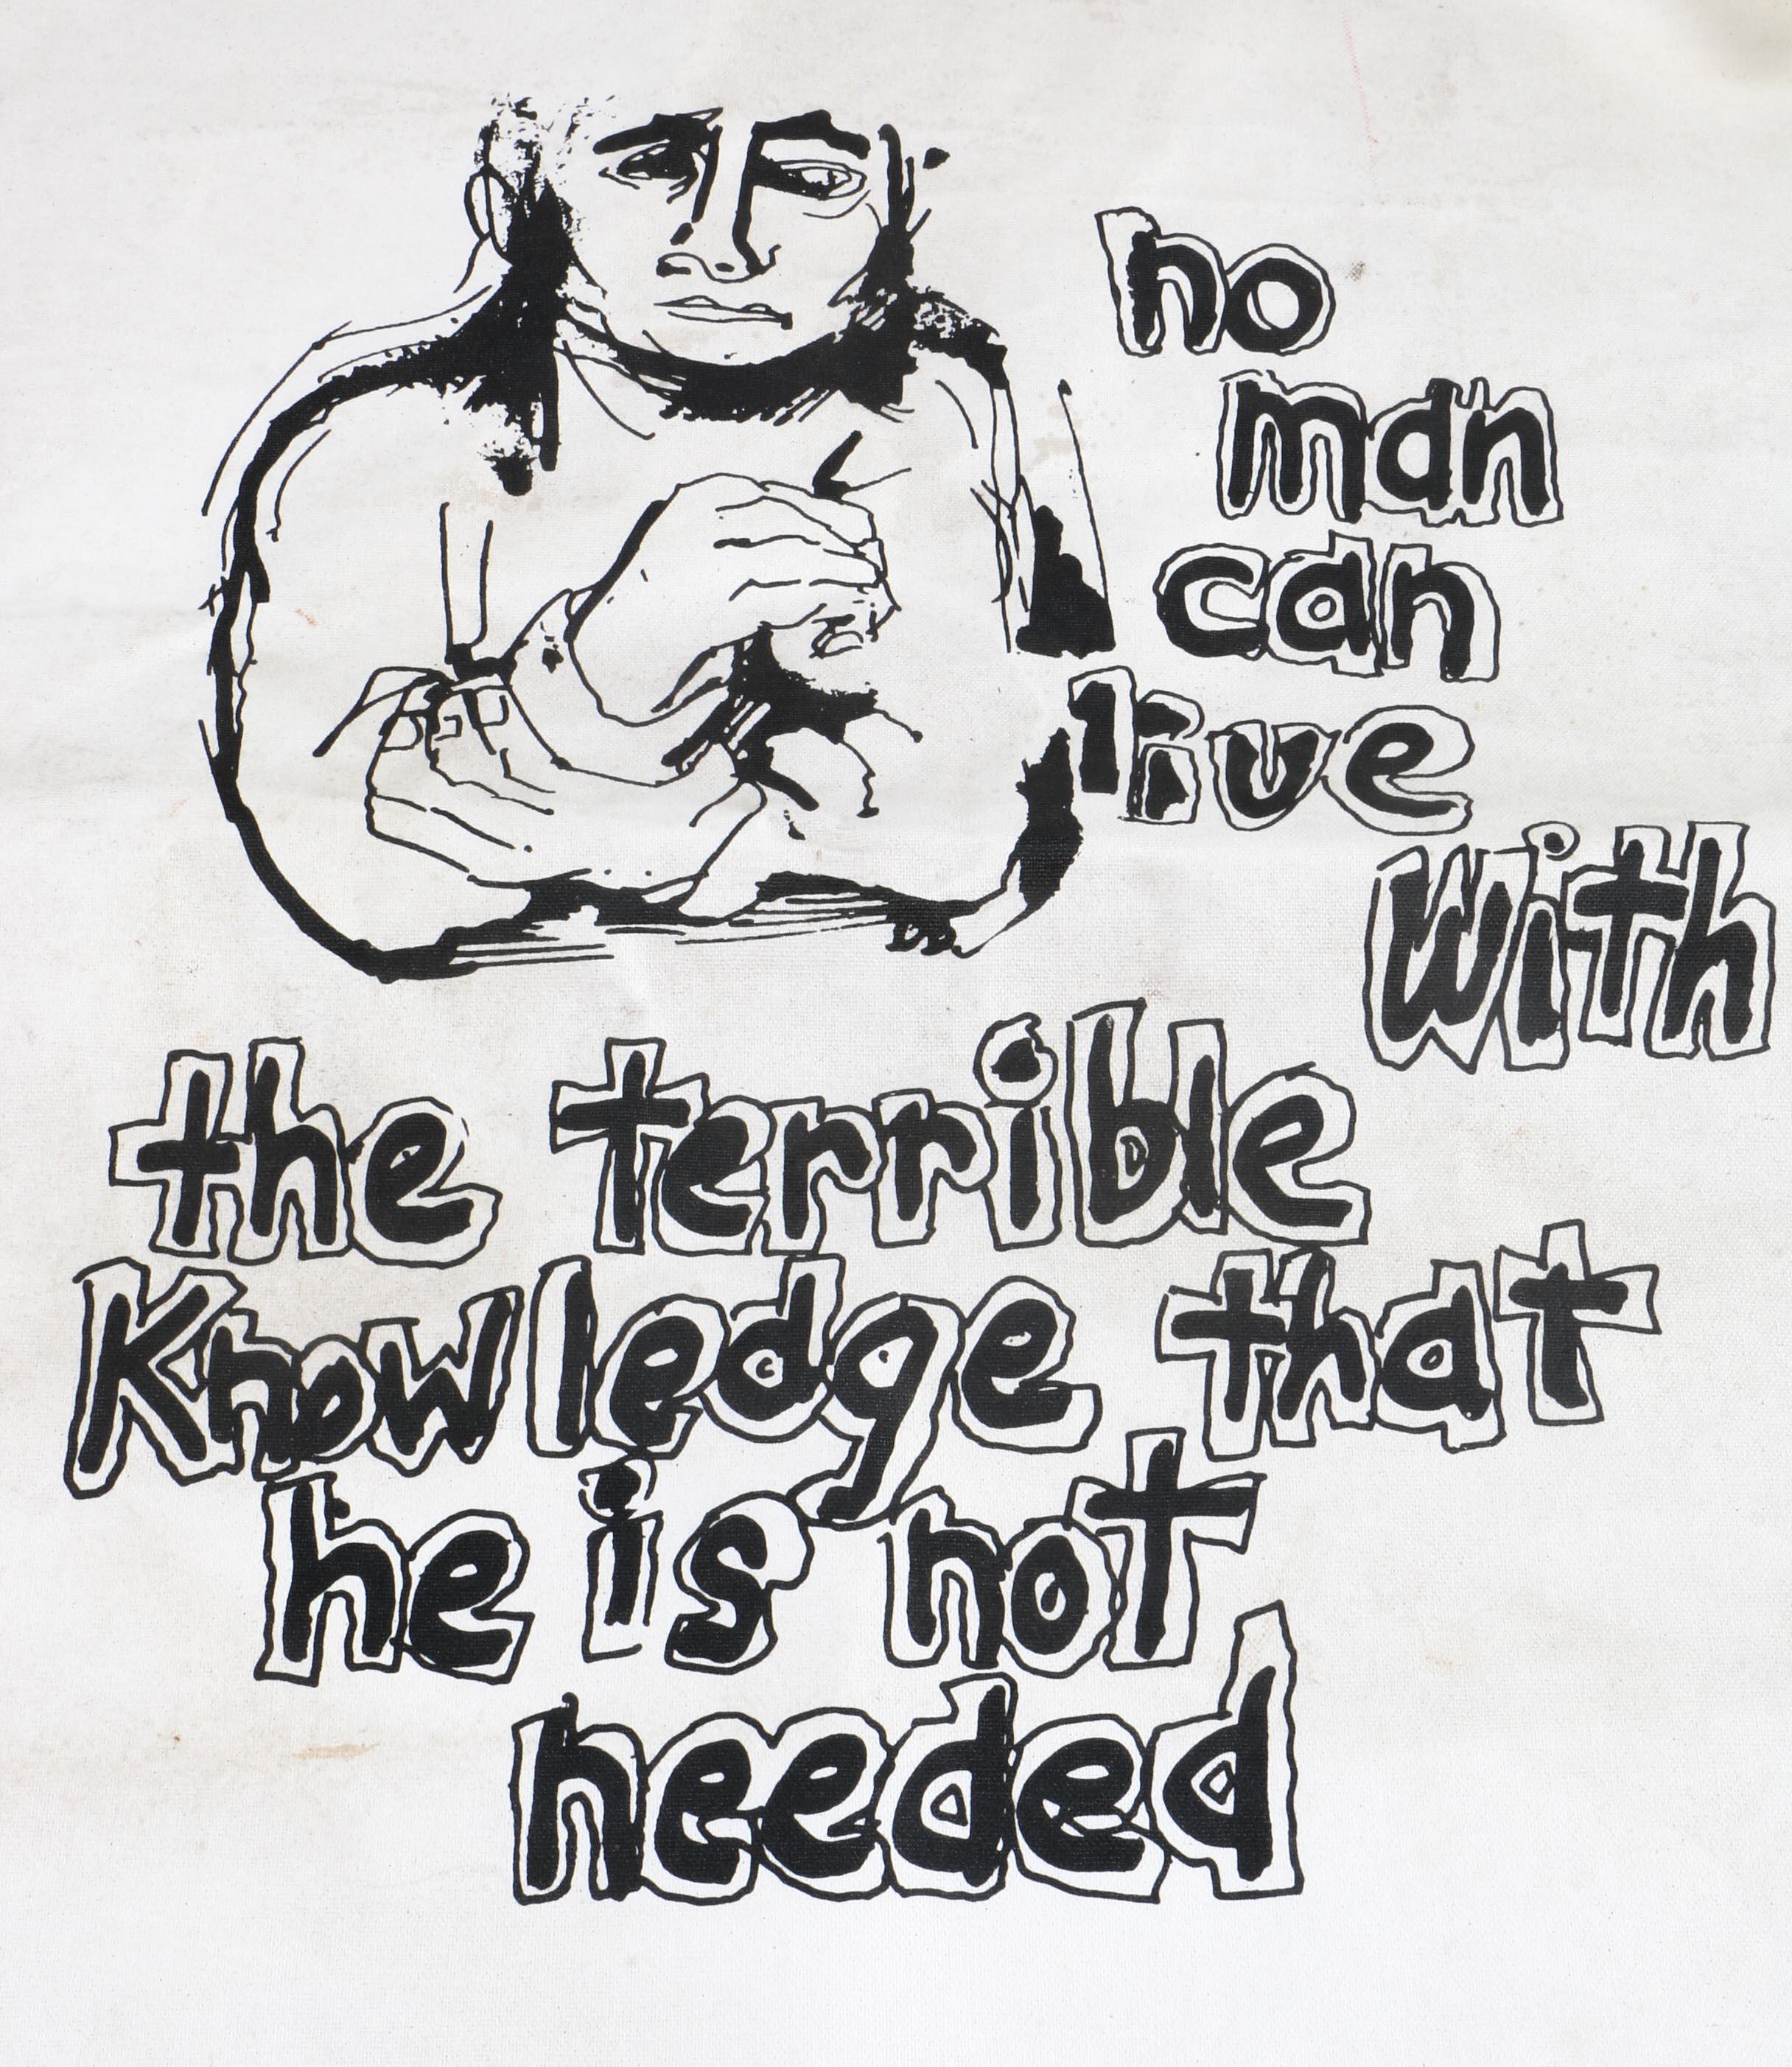 no
man
can
live
with
the terrible
Knowledge that
he is not
needed